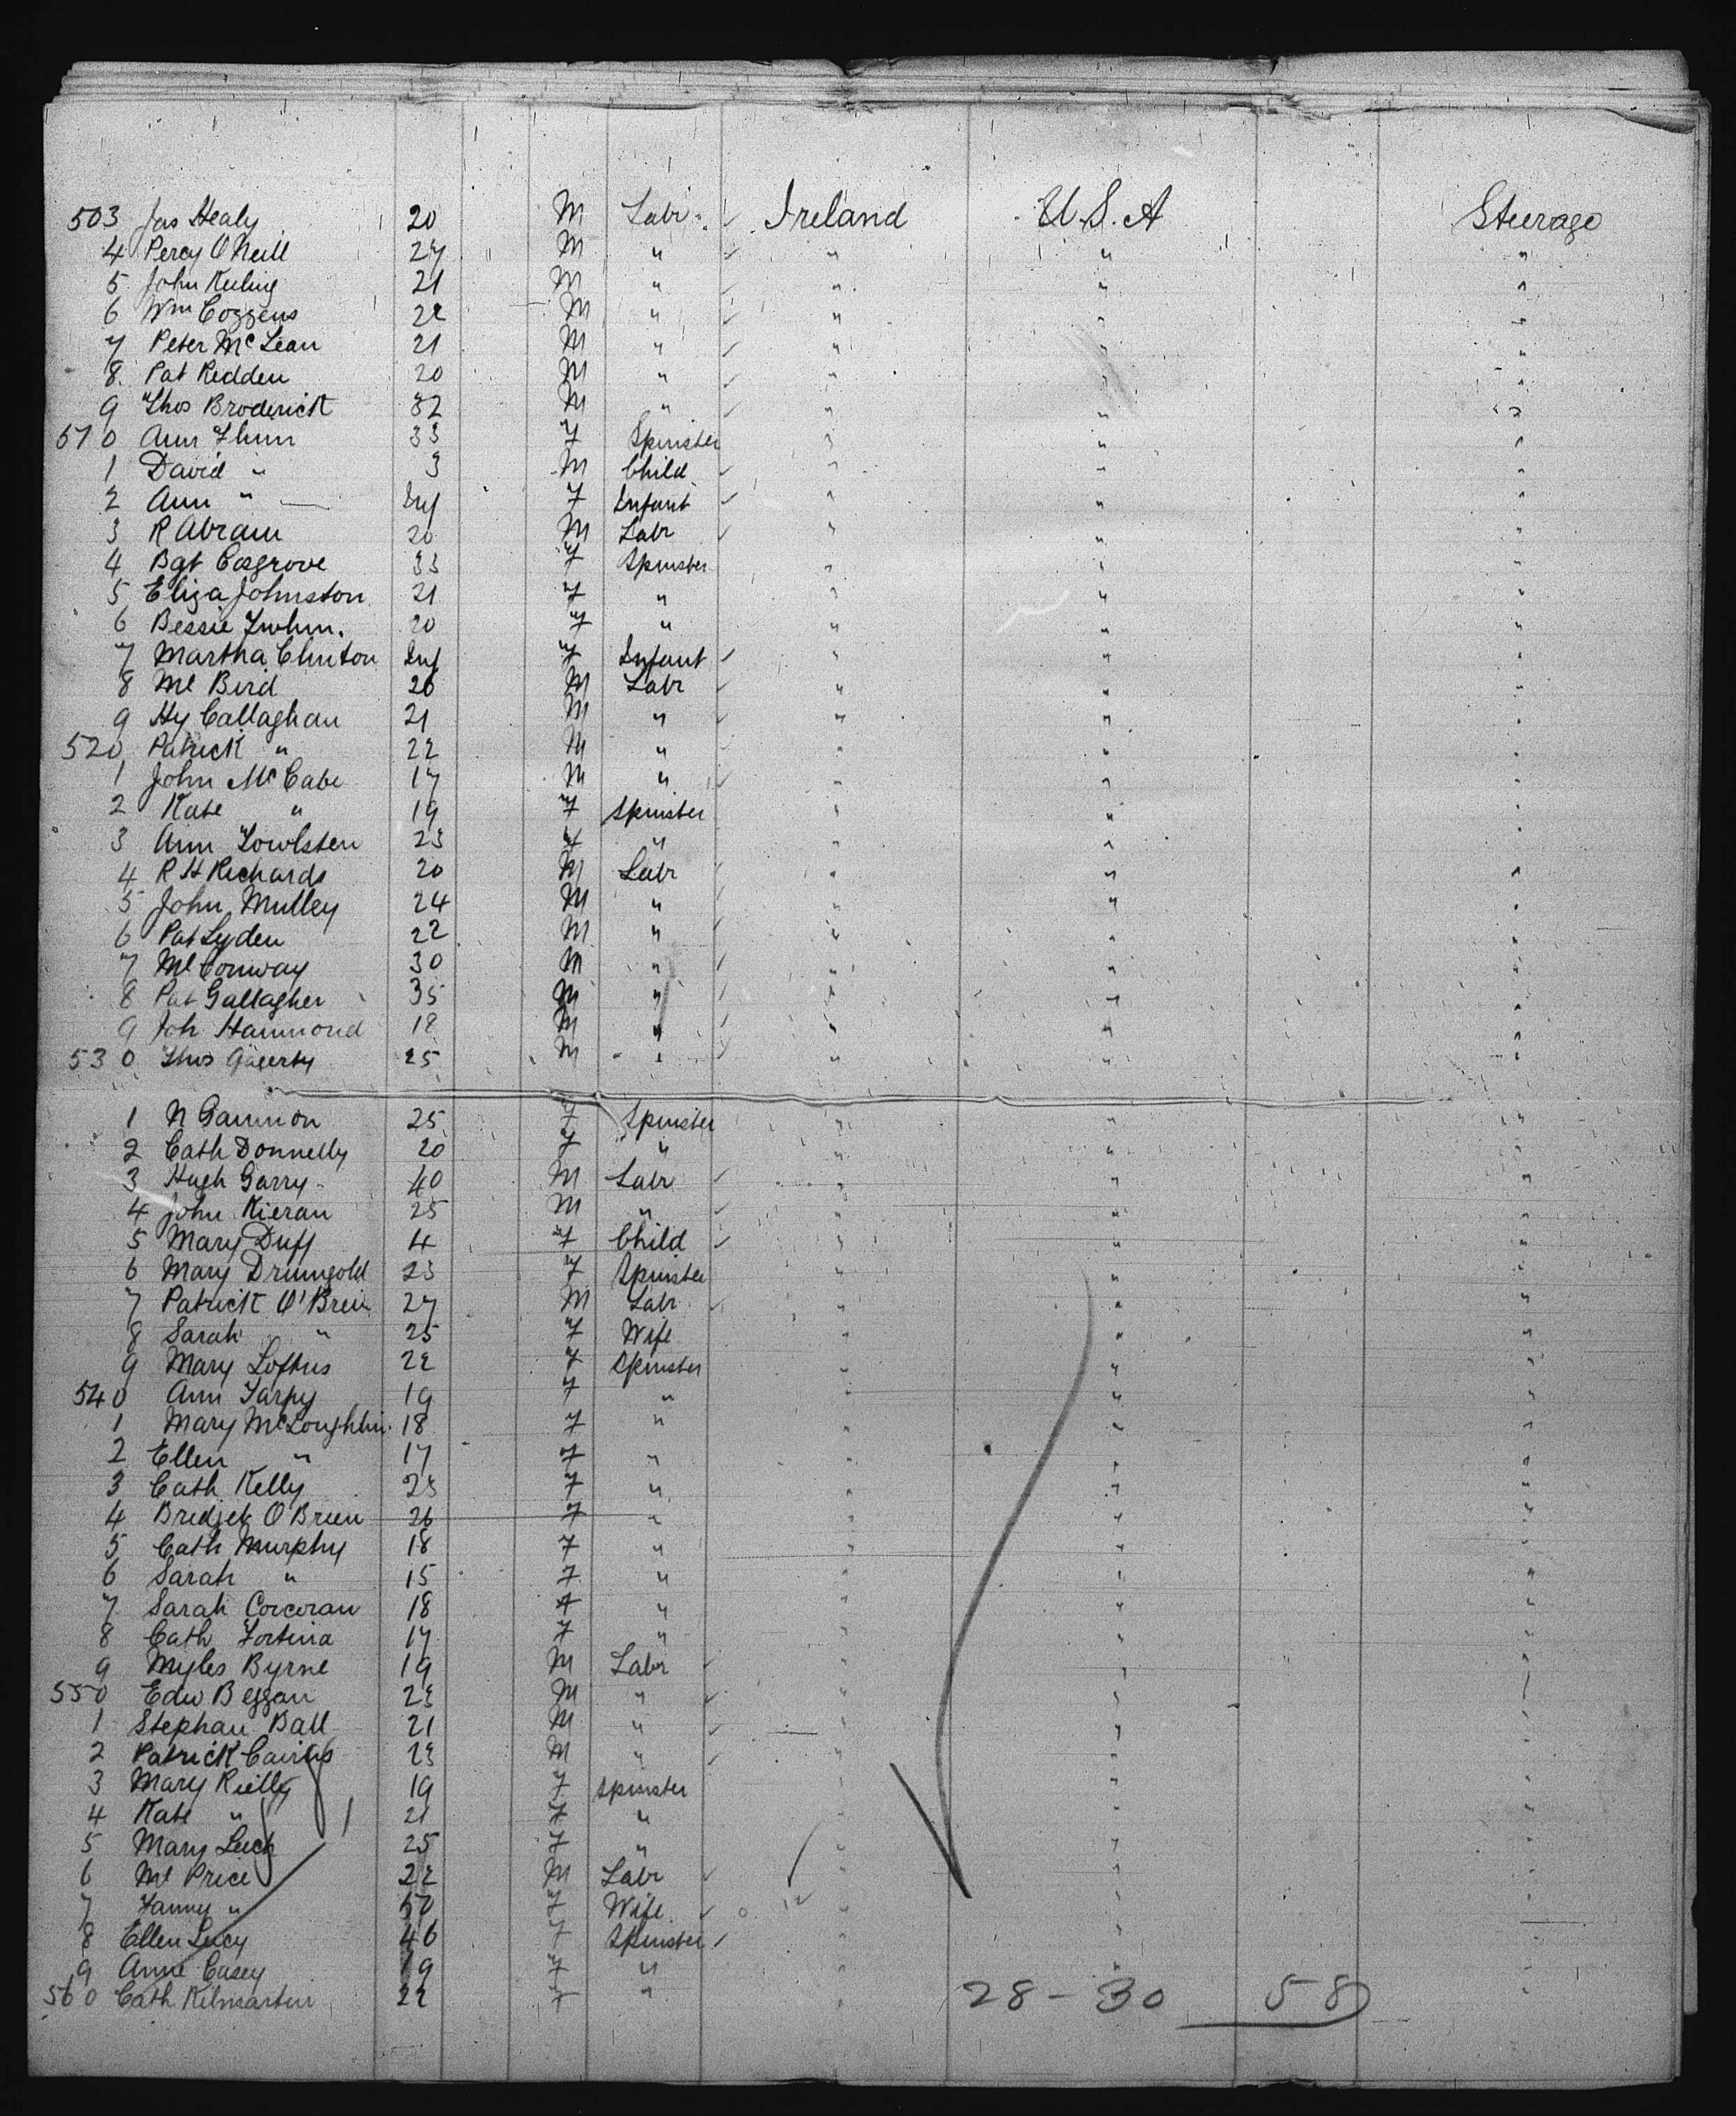 503 Jas Healy 20 M Labr Ireland U.S.A Steerage
4 Percy O'Neill 27 M " " " "
5 John Keeling 21 M " " " "
6 Wm Coggens 22 M " " " "
7 Peter McLean 21 M " " " "
8 Pat Redden 20 M " " " "
9 Thos Broderick 32 M " " " "
510 Ann Flinn 33 F Spinster " " "
1 David " 3 M Child " " "
2 Ann " Inf F Infant " " "
3 R Abram 20 M Labr " " "
4 Bgt Cosgrove 33 F Spinster " " "
5 Eliza Johnston 21 F " " " "
6 Bessie 20 F " " " "
7 Martha Clinton Inf F Infant " " "
8 Ml Bird 26 M Labr " " "
9 Hy Callaghan 21 M " " " "
520 Patrick " 22 M " " " "
1 John McCabe 17 M " " " "
2 Kate " 19 F Spinster " " "
3 Ann 23 F " " " "
4 R H Richards 20 M Labr " " "
5 John Mulley 24 M " " " "
6 Pat Lyden 22 M " " " "
7 Ml Conway 30 M " " " "
8 Pat Gallagher 35 M " " " "
9 Joh Hammond 18 M " " " "
530 Thos 25 M " " " "
1 N Gammon 25 F Spinster " " "
2 Cath Donnelly 20 F " " " "
3 Hugh Garry 40 M Labr " " "
4 John Kieran 25 M " " " "
5 Mary Duff 4 F Child " " "
6 Mary Drumgold 23 F Spinster " " "
7 Patrick O'Brein 27 M Labr " " "
8 Sarah " 25 F Wife " " "
9 Mary Loftus 22 F Spinster " " "
540 Ann Tarpy 19 F " " " "
1 Mary McLoughlin 18 F " " " "
2 Ellen " 17 F " " " "
3 Cath Kelly 23 F " " " "
4 Bredjet O'Brien 26 F " " " "
5 Cath Murphy 18 F " " " "
6 Sarah " 15 F " " " "
7 Sarah Corcoran 18 F " " " "
8 Cath 17 F " " " "
9 Myles Byrne 19 M Labr " " "
550 Edw Beggan 23 M " " " "
1 Stephan Ball 21 M " " " "
2 Patrick Cairns 23 M " " " "
3 Mary Rielly 19 F Spinster " " "
4 Kate " 21 F " " " "
5 Mary 25 F " " " "
6 Ml Price 22 M Labr " " "
7 Fanny " 50 F Wife " " "
8 Ellen Lucy 46 F Spinster " " "
9 Anne Casey 19 F " " " "
560 Cath Kilmartin 22 F " " "
28 - 30 58